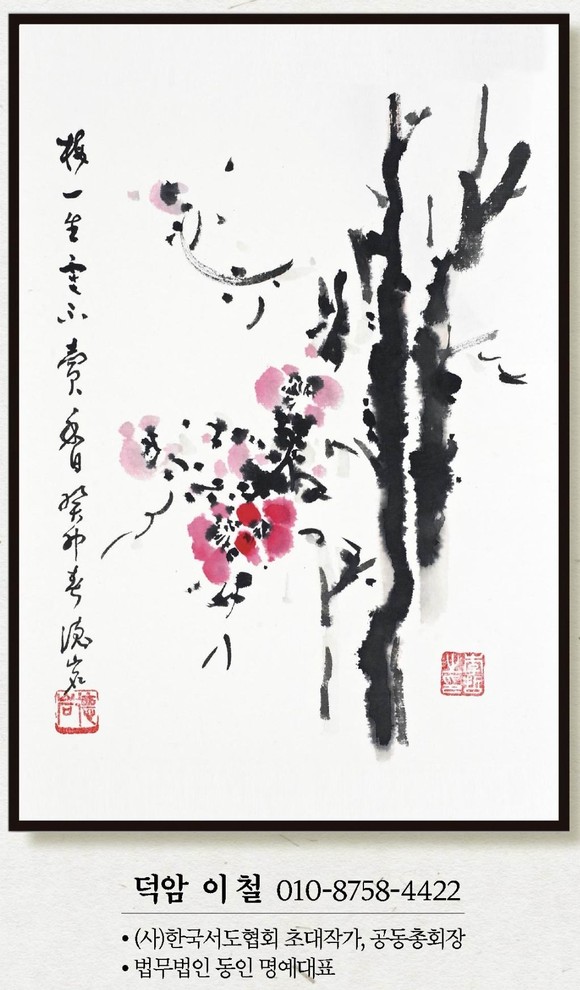 梅一生寒不賣香 癸卯春 德岩
덕암 이 철 010-8758-4422
• (사)한국서도협회 초대작가, 공동총회장
• 법무법인 동인 명예대표